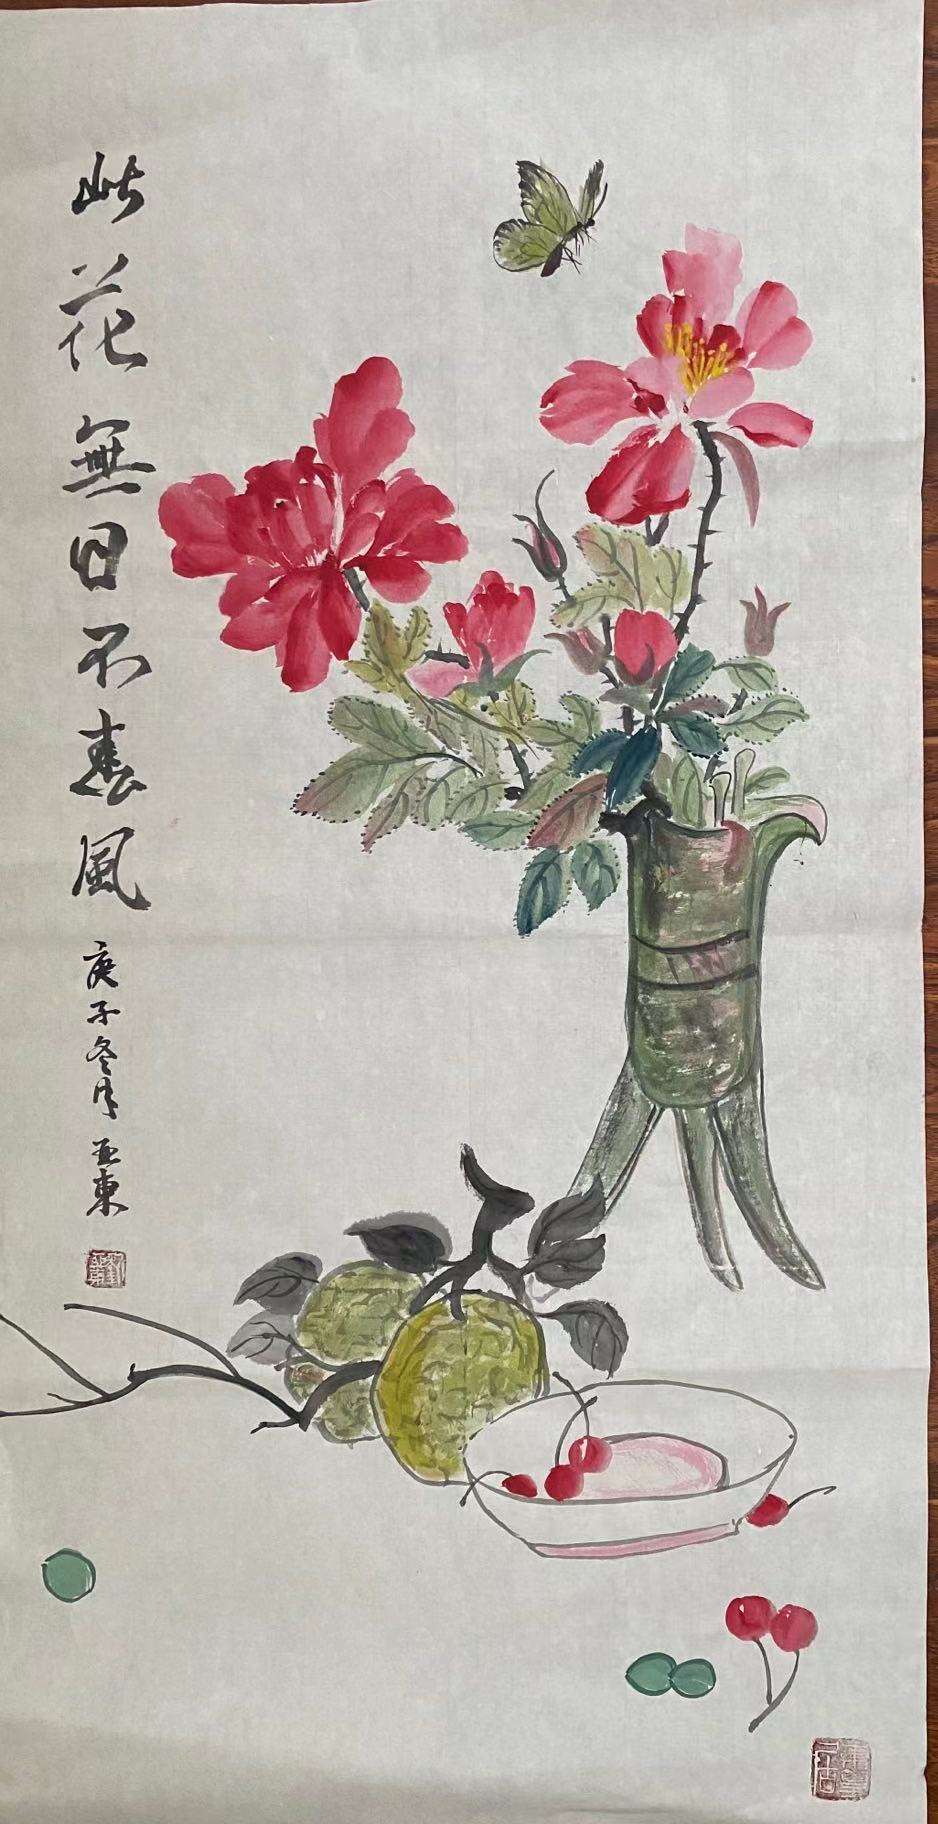 此花無日不春風
庚子冬月 亚東